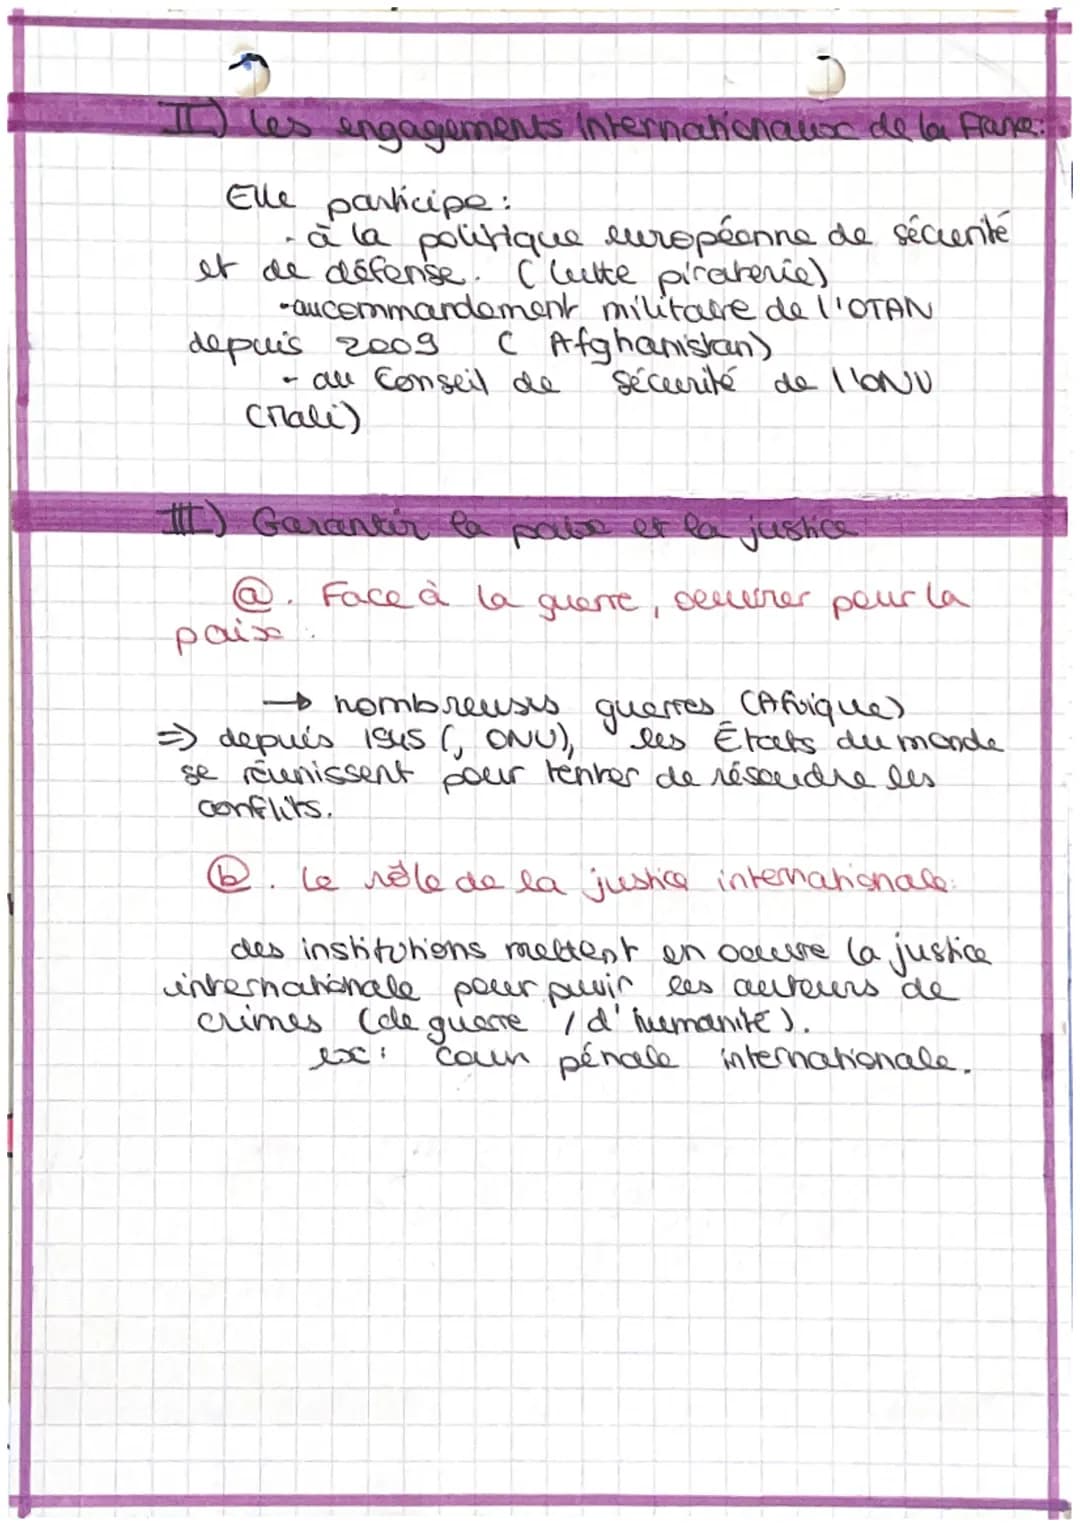 II) les engagements internationaux de la France:
Elle participe:
- à la politique européenne de sécurité
et de défense. (lutte piraterie)
- au commandement militaire de l'OTAN
depuis 2009 (Afghanistan)
- au Conseil de sécurité de l'ONU
(Mali)
III) Garantir la paix et la justice
ⓐ. Face à la guerre, oeuvrer pour la
paix:
→ nombreuses guerres (Afrique)
⇒ depuis 1945 (, ONU), les États du monde
se réunissent pour tenter de résoudre les
conflits.
ⓑ. Le rôle de la justice internationale:
des institutions mettent en oeuvre la justice
internationale pour puvir les auteurs de
crimes (de guerre / d'humanité).
ex: Cour pénale internationale.